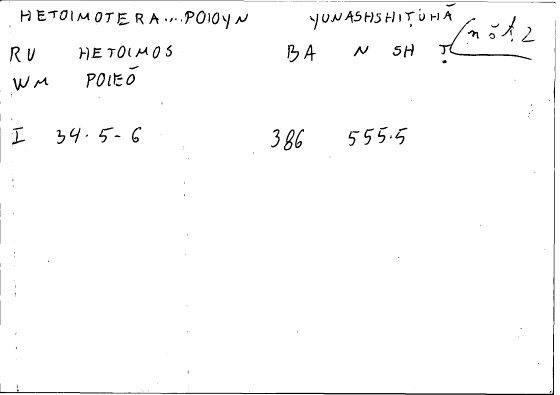 HETOIMOTERA...POIOYN YUNASHSHIṬUHĀ
RU HETOIMOS BA N SH Ṭ
WM POIEŌ
I 34.5-6 386 555.5